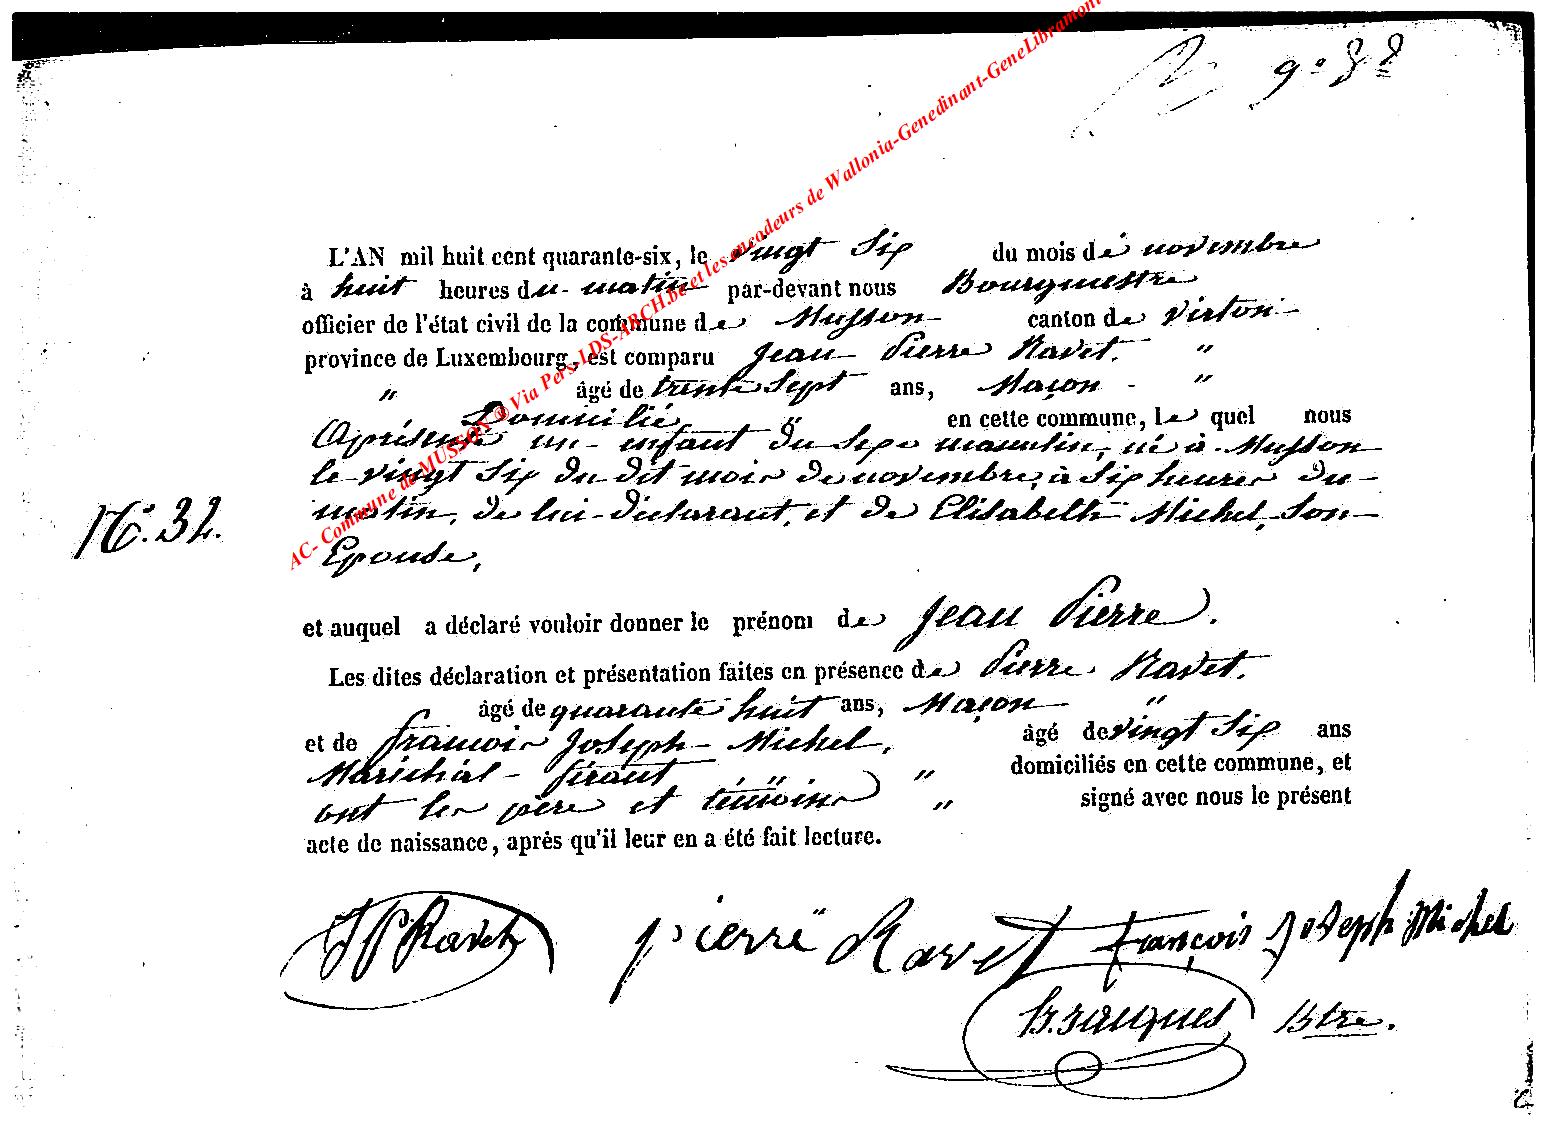 9.º 8.bre
L'AN mil huit cent quarante-six, le vingt Six du mois de novembre
à huit heures du matin par-devant nous Bourgmestre
officier de l'état civil de la commune de Musson canton de Virton
province de Luxembourg, est comparu Jean Pierre Ravet. "
" âgé de trente Sept ans, Maçon - "
Domicilié " en cette commune, le quel nous
Aprésenté un enfant du Sexe masculin, né à Musson
le vingt Six du dit mois de novembre, à Six heures du
matin, de lui déclarant, et de Elisabeth Michel, Son
Epouse,
N.º 32.
et auquel a déclaré vouloir donner le prénom de Jean Pierre.
Les dites déclaration et présentation faites en présence de Pierre Ravet.
âgé de quarante huit ans, Maçon "
et de françois Joseph Michel, âgé de vingt Six ans
Maréchal-férant " domiciliés en cette commune, et
ont les père et témoins " signé avec nous le présent
acte de naissance, après qu'il leur en a été fait lecture.
JP Ravet pierre Ravet françois Joseph Michel
Jacques Btre.
AC- Commune de MUSSON ® Via Pers-LDS-ARCH.be et les encodeurs de Wallonia-Genedinant-GeneLibramont